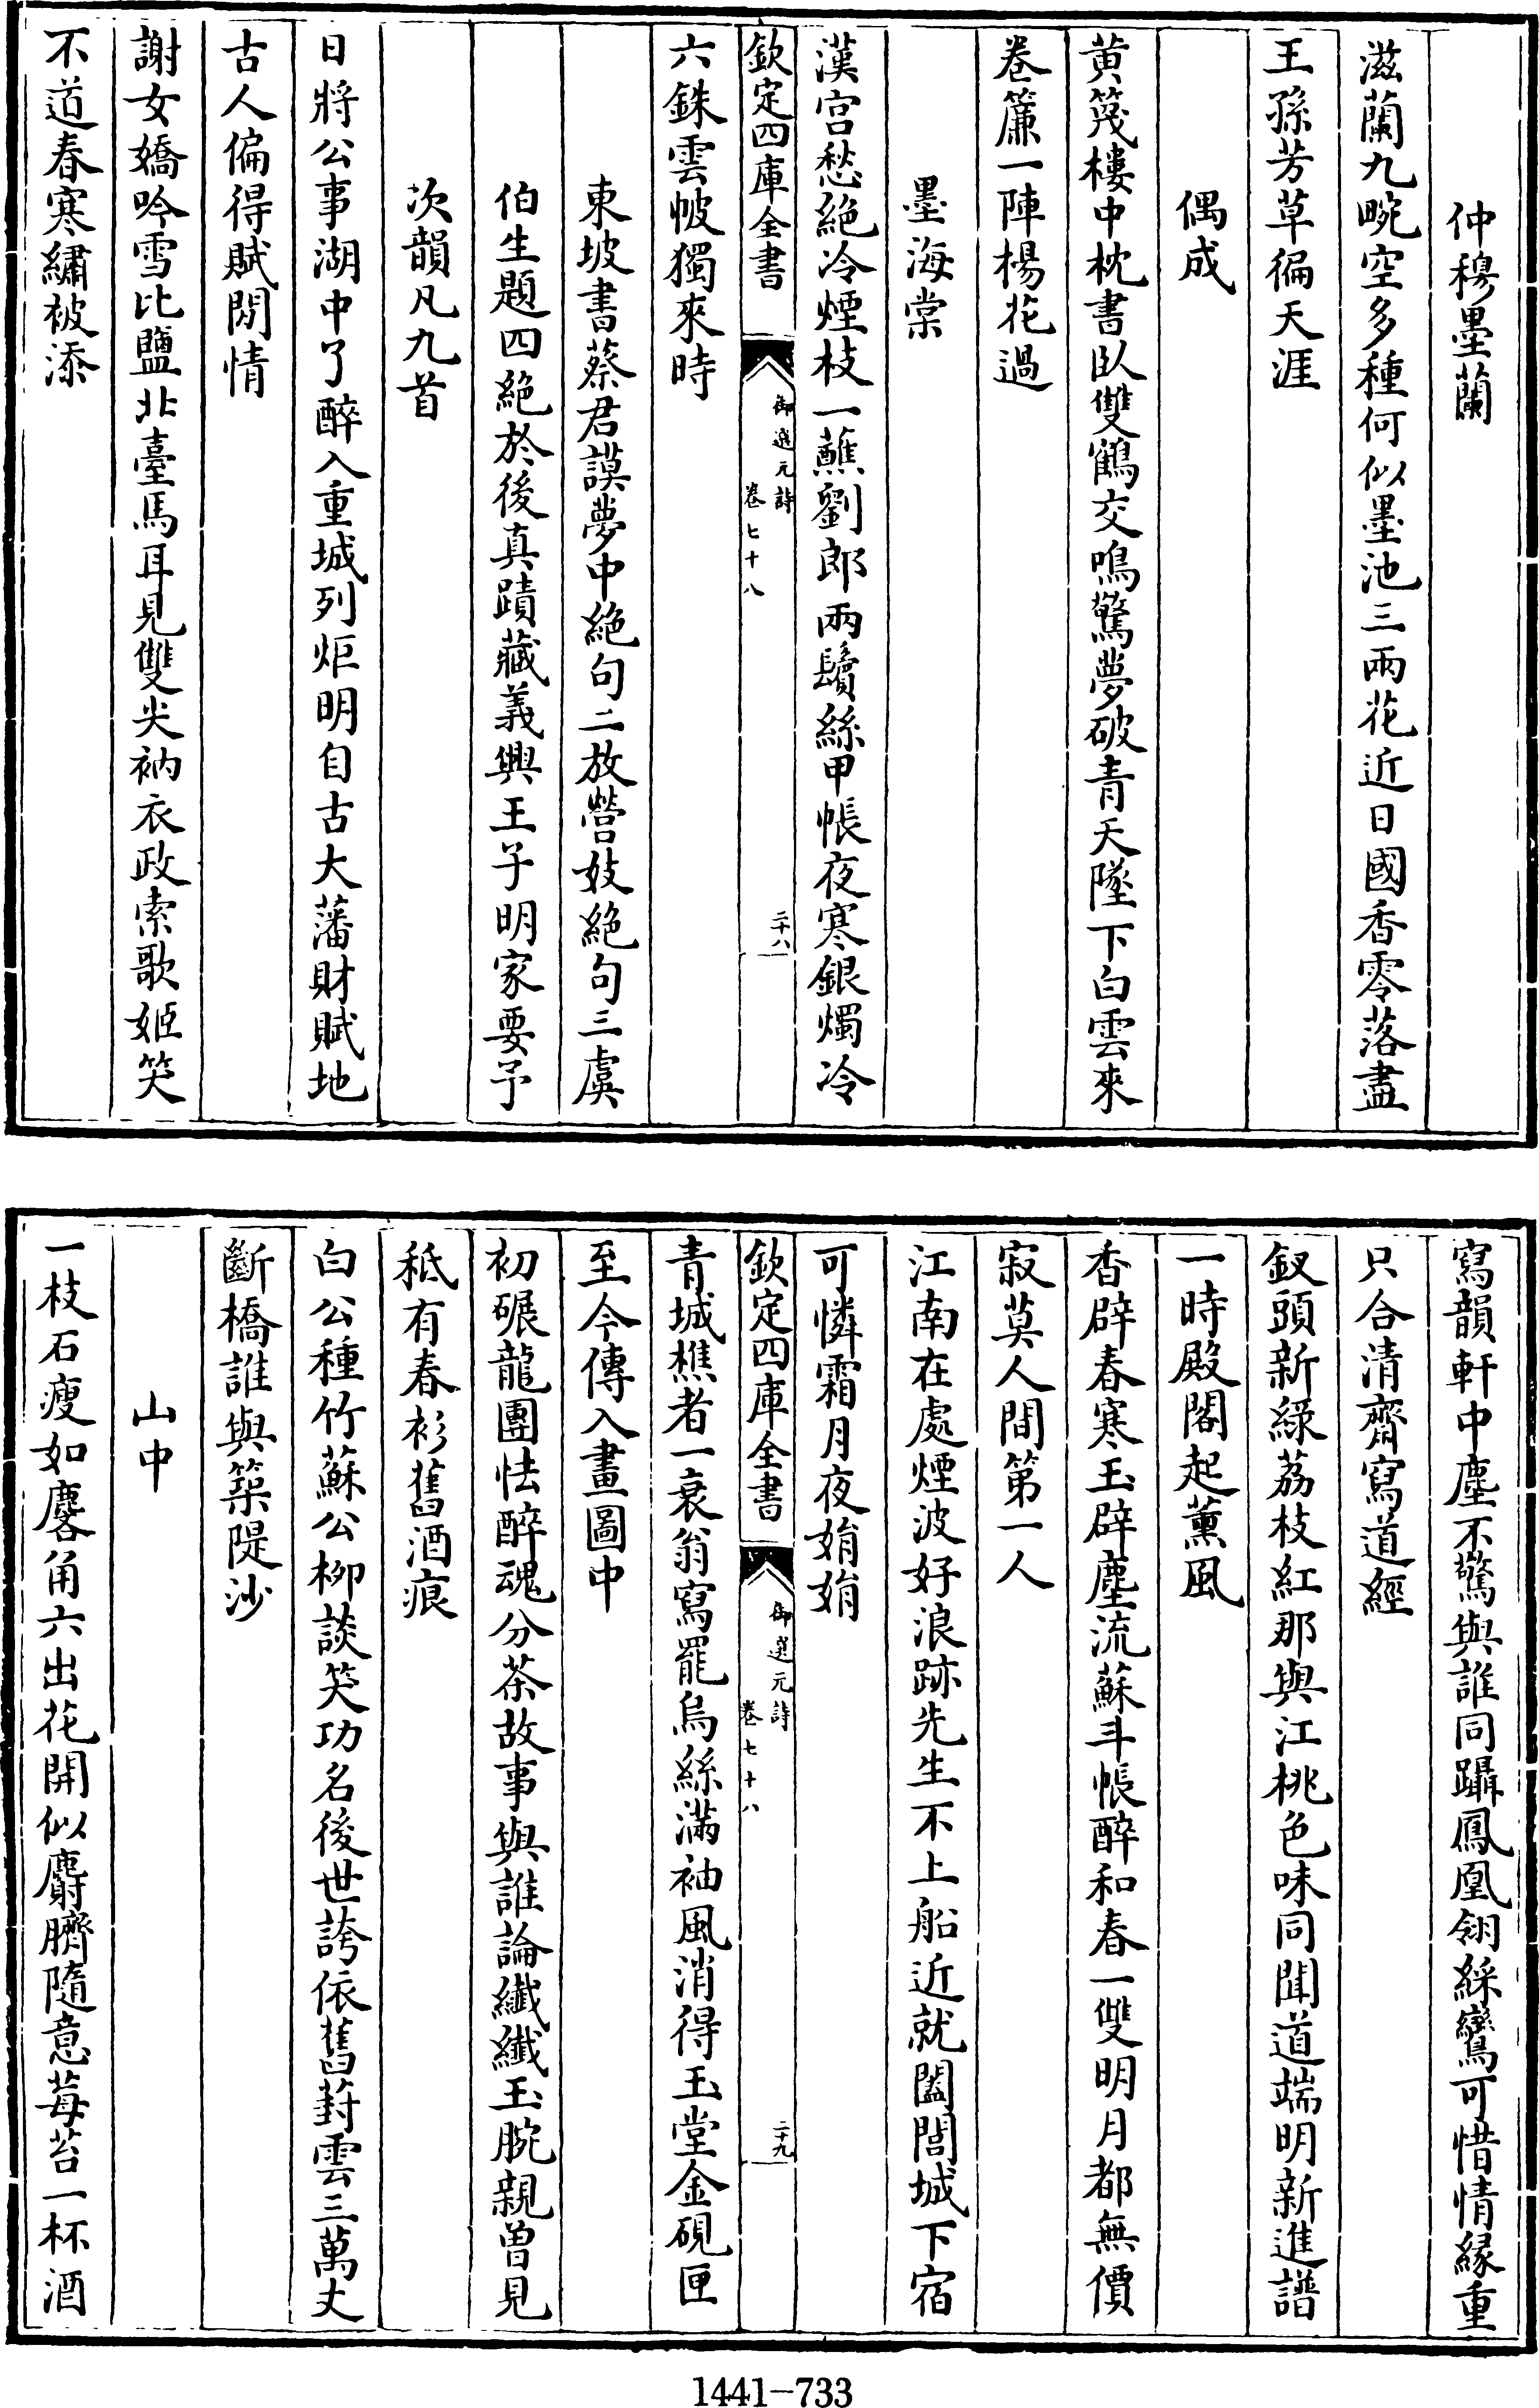 仲穆墨蘭
滋蘭九畹空多種何似墨池三兩花近日國香零落盡
王孫芳草徧天涯
偶成
黄篾樓中枕書臥雙鶴交鳴驚夢破青天墜下白雲來
卷簾一陣楊花過
墨海棠
漢宮愁絕冷煙枝一蘸劉郎兩鬢絲甲帳夜寒銀燭冷
欽定四庫全書
御選元詩
卷七十八
二十八
六銖雲帔獨來時
東坡書蔡君謨夢中絕句二放營妓絕句三虞
伯生題四絕於後真蹟藏義興王子明家要予
次韻凡九首
日將公事湖中了醉入重城列炬明自古大藩財賦地
古人偏得賦閒情
謝女嬌吟雪比鹽北臺馬耳見雙尖衲衣政索歌姬笑
不道春寒繡被添
寫韻軒中塵不驚與誰同躡鳳凰翎綵鸞可惜情緣重
只合清齋寫道經
釵頭新綠荔枝紅那與江桃色味同聞道端明新進譜
一時殿閣起薰風
香辟春寒玉辟塵流蘇斗帳醉和春一雙明月都無價
寂莫人間第一人
江南在處煙波好浪跡先生不上船近就闔閭城下宿
可憐霜月夜娟娟
欽定四庫全書
御選元詩
卷七十八
二十九
青城樵者一衰翁寫罷烏絲滿袖風消得玉堂金硯匣
至今傳入畫圖中
初碾龍團怯醉魂分茶故事與誰論纖纖玉腕親曾見
秖有春衫舊酒痕
白公種竹蘇公柳談笑功名後世誇依舊葑雲三萬丈
斷橋誰與築隄沙
山中
一枝石瘦如麐角六出花開似麝臍隨意莓苔一杯酒
1441-733